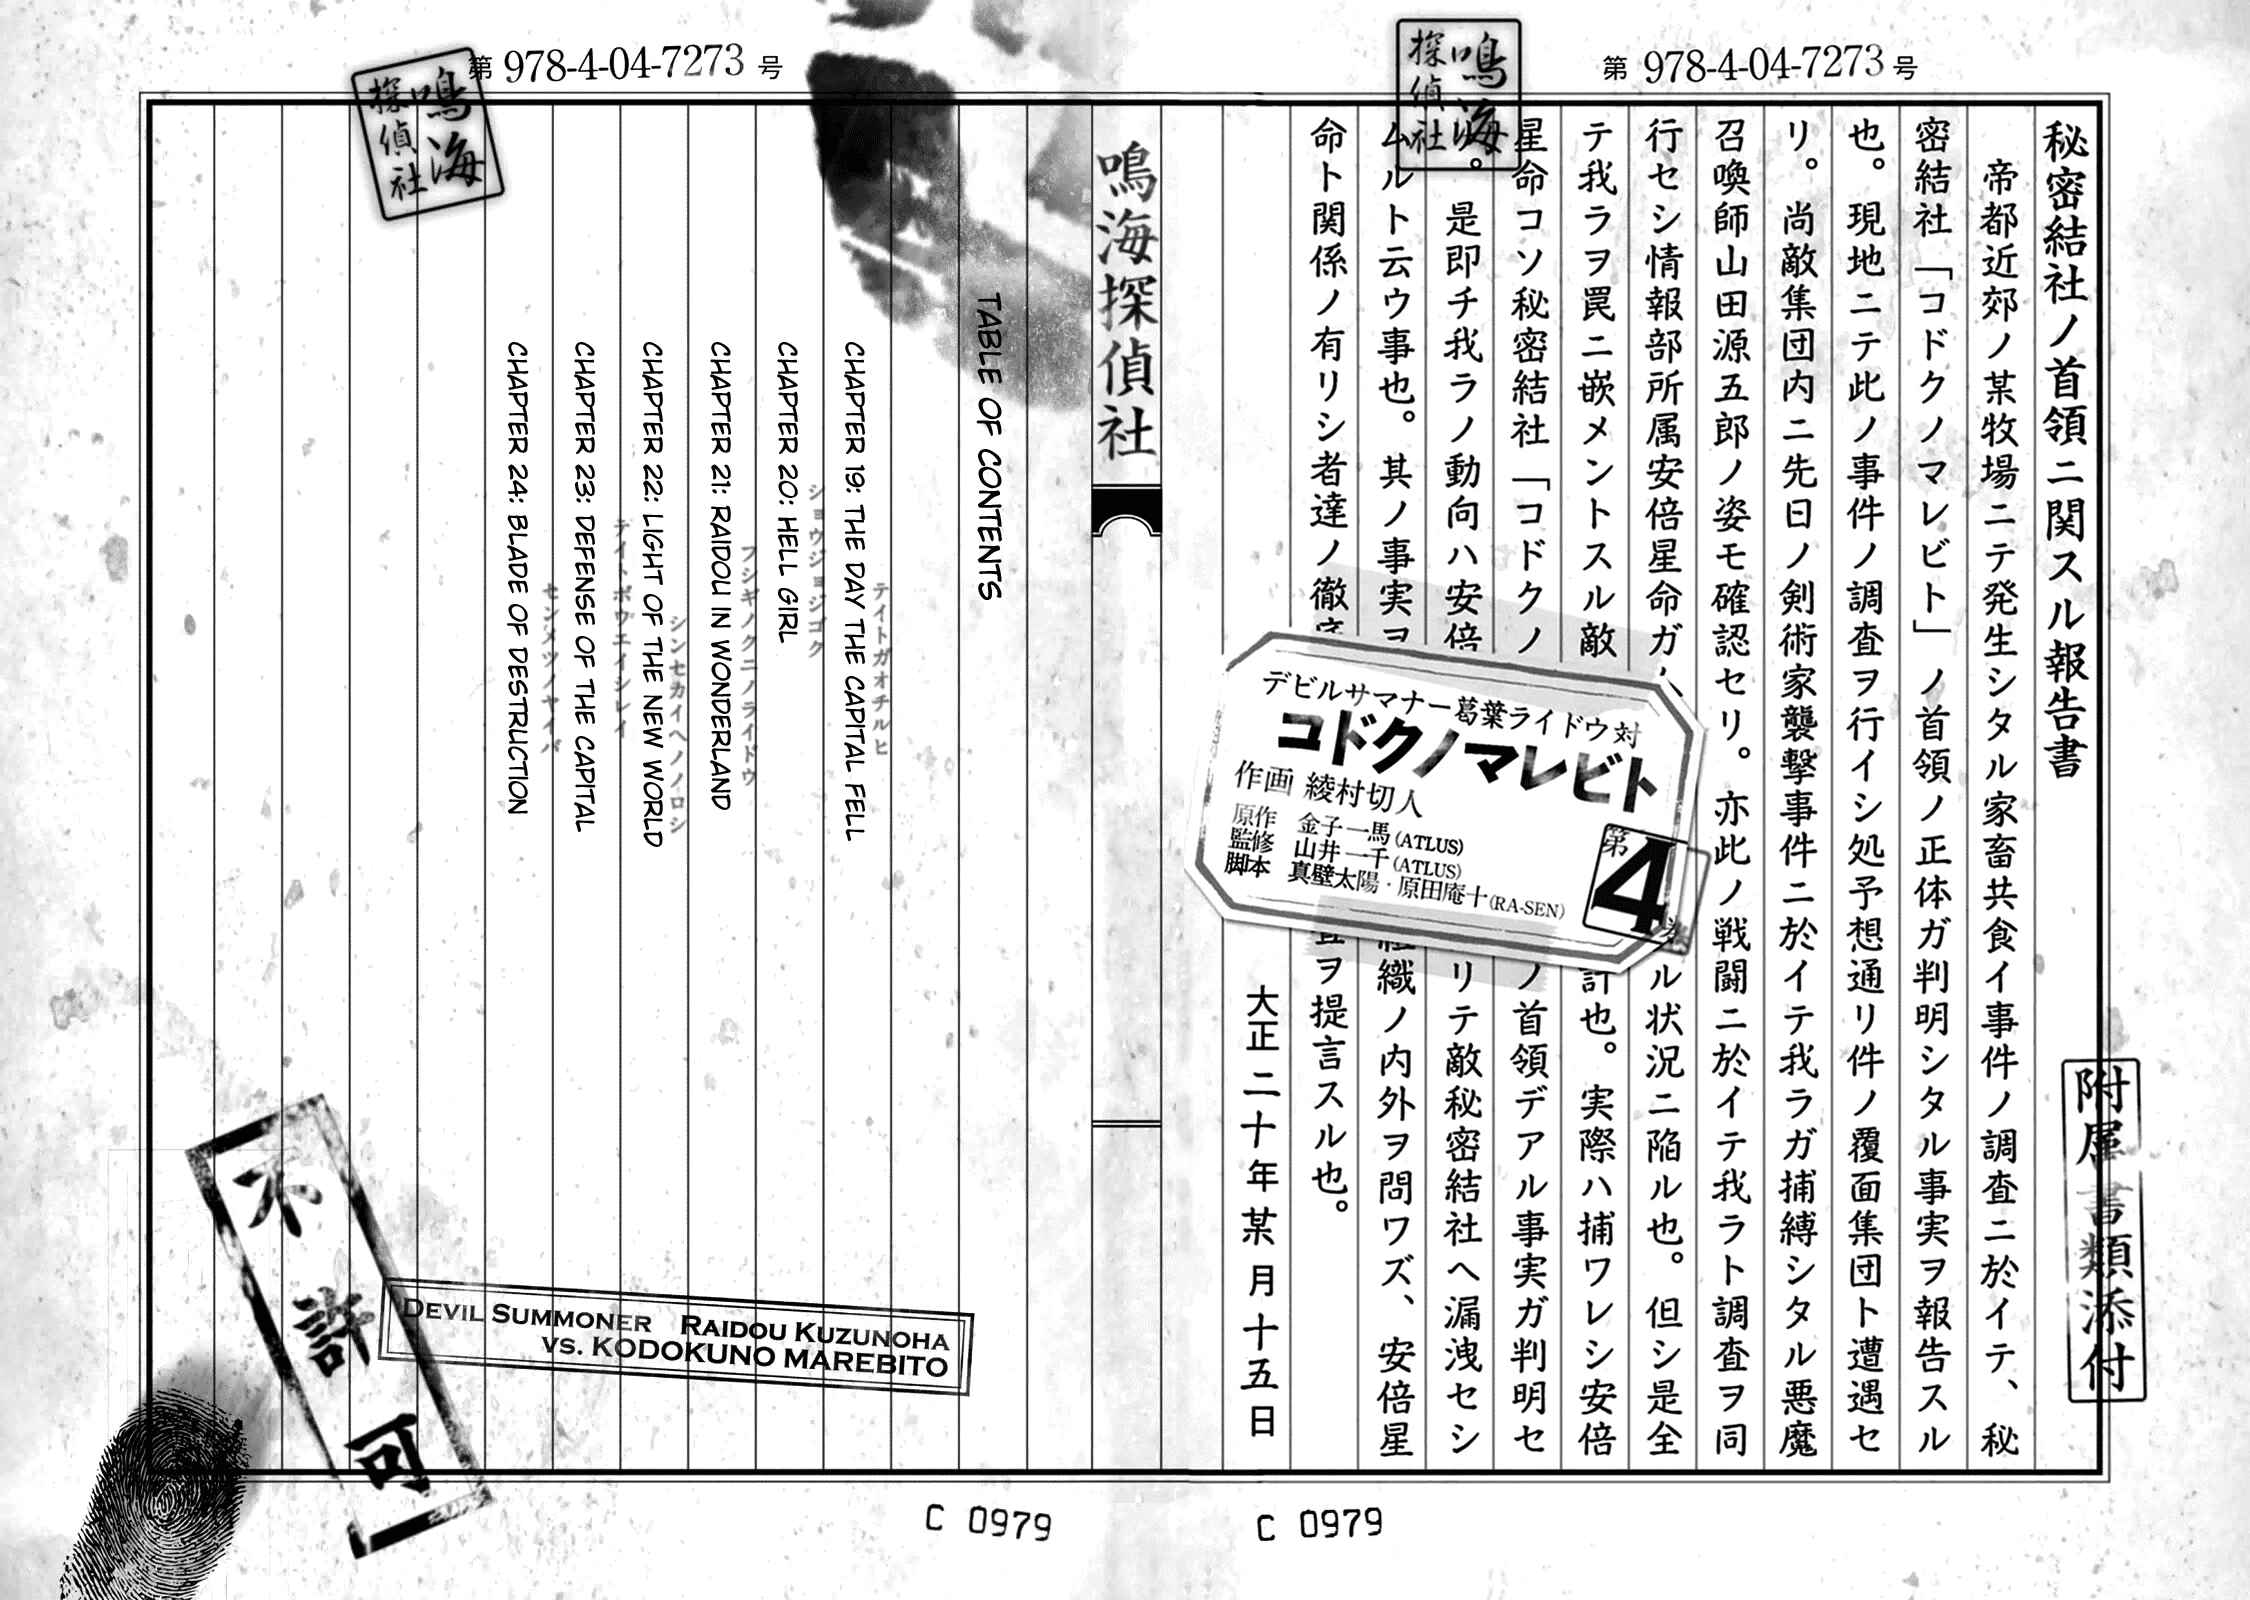 第 978-4-04-7273 号
鳴海
探偵社
附属書類添付
秘密結社ノ首領ニ関スル報告書
帝都近郊ノ某牧場ニテ発生シタル家畜共食イ事件ノ調査ニ於イテ、秘
密結社「コドクノマレビト」ノ首領ノ正体ガ判明シタル事実ヲ報告スル
也。現地ニテ此ノ事件ノ調査ヲ行イシ処予想通リ件ノ覆面集団ト遭遇セ
リ。尚敵集団内ニ先日ノ剣術家襲撃事件ニ於イテ我ラガ捕縛シタル悪魔
召喚師山田源五郎ノ姿モ確認セリ。亦此ノ戦闘ニ於イテ我ラト調査ヲ同
行セシ情報部所属安倍星命ガ
ル状況ニ陥ル也。但シ是全
テ我ラヲ罠ニ嵌メントスル敵
計也。実際ハ捕ワレシ安倍
星命コソ秘密結社「コドクノ
ノ首領デアル事実ガ判明セ
リ。是即チ我ラノ動向ハ安倍
リテ敵秘密結社ヘ漏洩セシ
ムルト云ウ事也。其ノ事実ヲ
組織ノ内外ヲ問ワズ、安倍星
命ト関係ノ有リシ者達ノ徹底
査ヲ提言スル也。
大正二十年某月十五日
デビルサマナー葛葉ライドウ対
コドクノマレビト
作画 綾村切人
原作 金子一馬(ATLUS)
監修 山井一千(ATLUS)
脚本 真壁太陽・原田庵十(RA-SEN)
第4巻
C 0979
鳴海探偵社
第 978-4-04-7273 号
鳴海
探偵社
TABLE OF CONTENTS
テイトガオチルヒ
CHAPTER 19: THE DAY THE CAPITAL FELL
ショウジョジゴク
CHAPTER 20: HELL GIRL
フシギノクニノライドウ
CHAPTER 21: RAIDOU IN WONDERLAND
シンセカイヘノノロシ
CHAPTER 22: LIGHT OF THE NEW WORLD
テイトボウエイシレイ
CHAPTER 23: DEFENSE OF THE CAPITAL
センメツノヤイバ
CHAPTER 24: BLADE OF DESTRUCTION
不許可
DEVIL SUMMONER RAIDOU KUZUNOHA
VS. KODOKUNO MAREBITO
C 0979